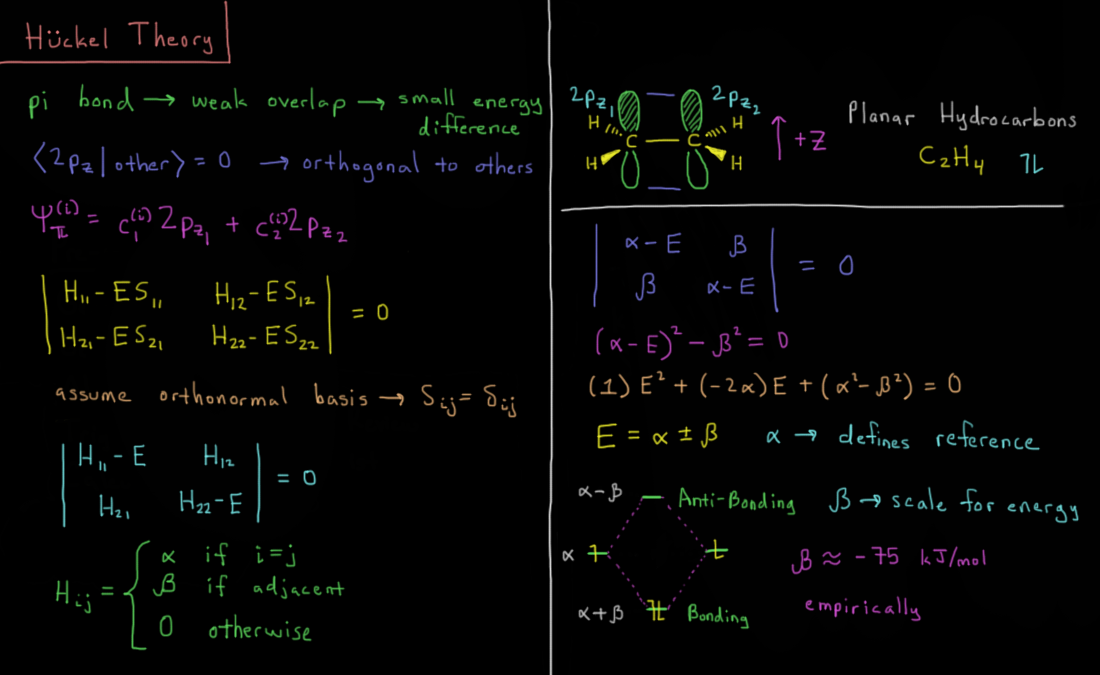 Hückel Theory
pi bond → weak overlap → small energy
difference
⟨2Pz|other⟩ = 0 → orthogonal to others
Ψπ^(i) = c₁^(i) 2Pz₁ + c₂^(i) 2Pz₂
| H₁₁-ES₁₁ H₁₂-ES₁₂ |
| H₂₁-ES₂₁ H₂₂-ES₂₂ | = 0
assume orthonormal basis → Sij = δij
| H₁₁-E H₁₂ |
| H₂₁ H₂₂-E | = 0
Hij = {
α if i=j
β if adjacent
0 otherwise
2Pz₁ 2Pz₂
H H
C C
H H
+z
Planar Hydrocarbons
C₂H₄
| α-E β |
| β α-E | = 0
(α-E)² - β² = 0
(1)E² + (-2α)E + (α²-β²) = 0
E = α ± β α → defines reference
α-β Anti-Bonding β → scale for energy
α
β ≈ -75 kJ/mol
empirically
α+β Bonding